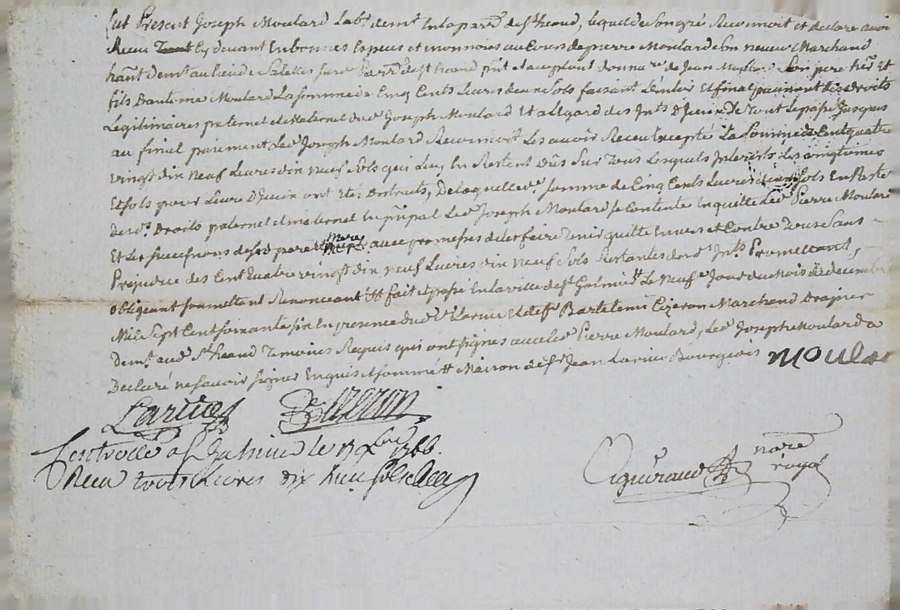 fut Present Joseph Moulard Labr demt en la parr de st heand, lequel de son gré Reconnoit et declare avoir
Receu cy devant En bonnes Especes et monnoies au Cours de pierre Moulard son neveu Marchand
hant demt au lieu de sur parr de st heand pnt et acceptant donnare de Jean Moulard Son pere heer et
fils Dantoine Moulard La somme de Cinq Cents Livres deux sols faisant dernier Et final paiement des droits
Legitimaires paternel et Maternel dud Joseph Moulard Et a legard des Ints D de tout Le passé Jusques
au final paiement Led Joseph Moulard Reconnoit Les avoir Receu Excepté La Somme de Cent quatre
vingt dix neuf Livres dix neuf sols qui Luy En Restent Dûs Sur Tous Lesquels Interets Les vingtiemes
Et sols pour Livre ont été Distraits, De laquelle somme de Cinq Cents Livres deux sols En Reste
desd. Droits paternel et maternel En pnpal Led Joseph Moulard se Contente En quitte Led Pierre Moulard
Et Les successions desd pere et mere avec promesse de les faire tenir quitte Envers et Contre tous Sans
Prejudice des Cent Quatre vingt dix neuf Livres dix neuf Sols Restantes desd Ints Promettant,
obligeant soumettant Renonceant &t fait et passé En la ville de st Galmier Le Neufe Jour du Mois de decembre
Mil Sept Cent soixante six En presence dud Sr Larive Et de sr Bartelemi Cizeron Marchand
demt aud St heand Temoins Requis qui ont signes avec led Pierre Moulard, Led Joseph Moulard a
Declaré ne savoir signer Enquis et sommé &t Maison de sr Jean Larive Bourgeois Moulard
Larive Cizeron
Controllé a st Galmier le 1766.
Receu trois Livres dix huit sols
nore
royal